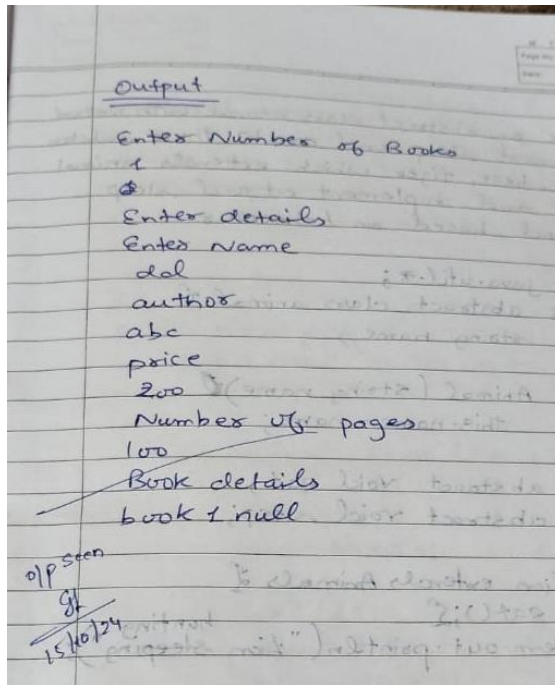 Output
Enter Number of Books
1
Enter details
Enter Name
dal
author
abc
price
200
Number of pages
100
Book details
book 1 null
o/p seen
15/10/24